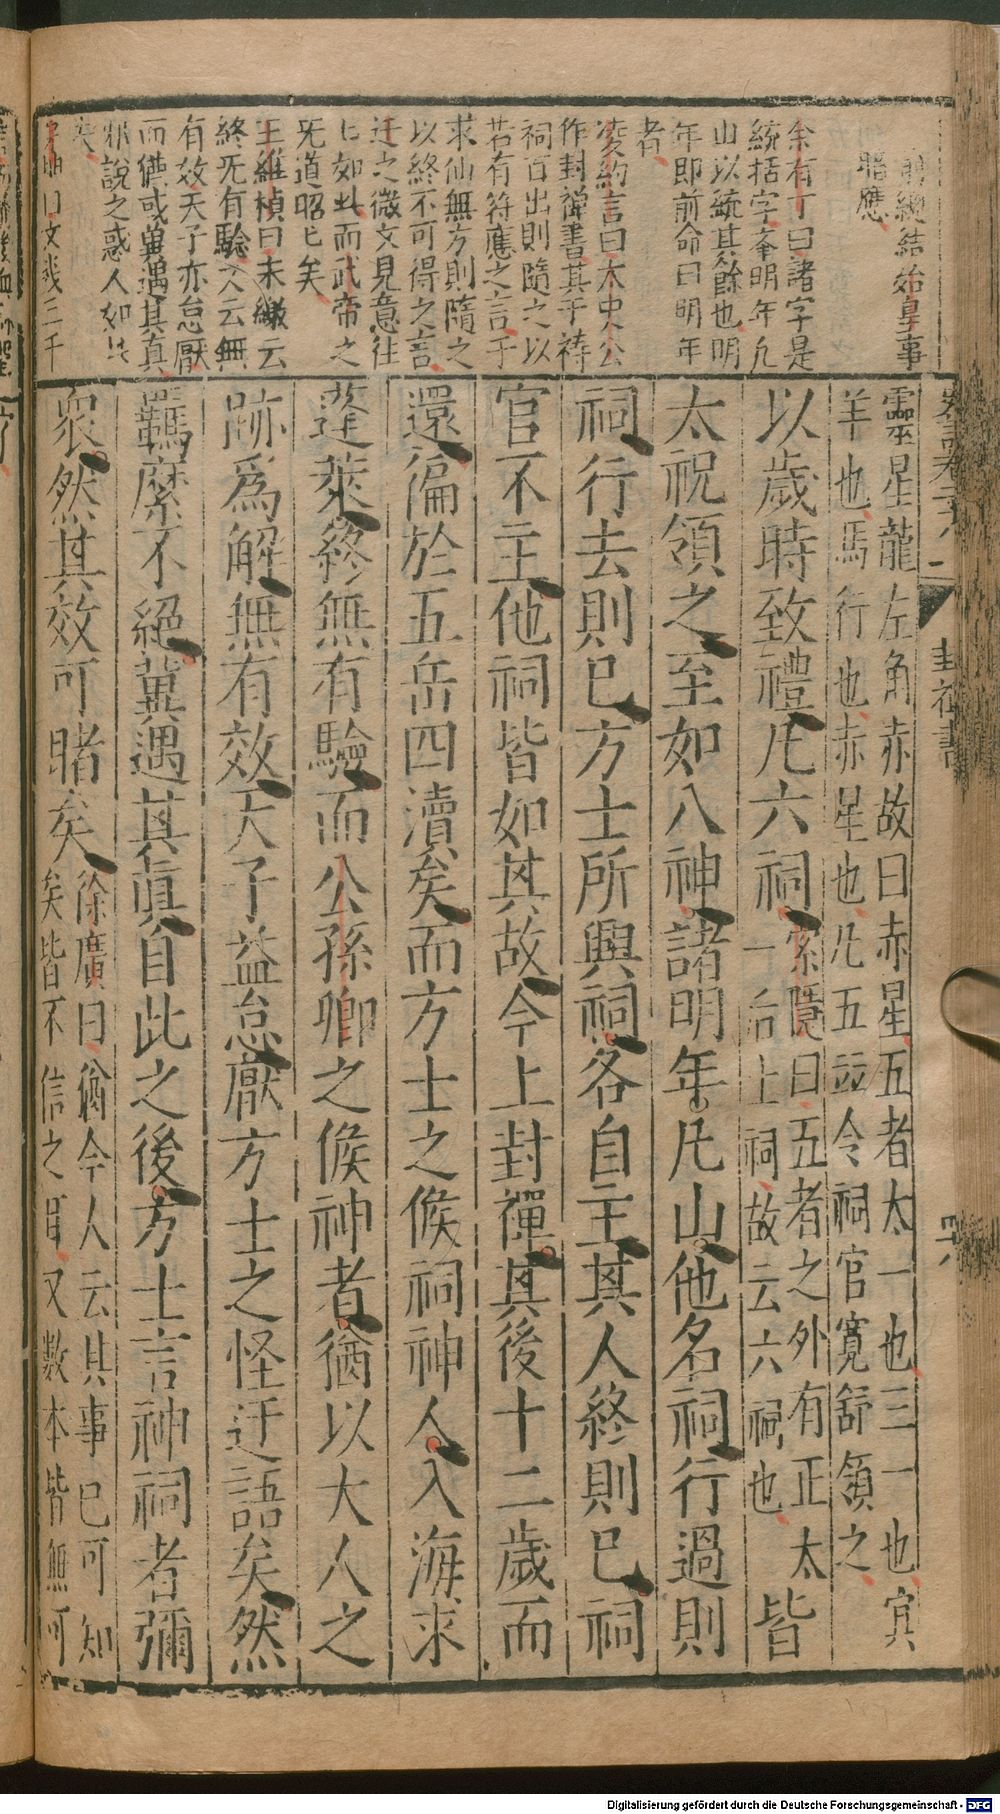 與總結始皇事
暗應
余有丁曰諸字是
統括字夆明年凢
山以統其餘也明
年即前命曰明年
者
凌約言曰太史公
作封禪書其于禱
祠百出則隨之以
若有符應之言于
求仙無方則隨之
以終不可得之言
迂之微文見意往
亡如此而武帝之
旡道昭亡矣
王維楨曰未繳云
終旡有驗又云無
有效天子亦怠厭
而猶或冀遇其真
邪說之惑人如此
夫
史記卷二十八
封禪書
四十八
靈星龍左角赤故曰赤星五者太一也三一也冝
羊也馬行也赤星也凢五並令祠官寬舒領之
以歲時致禮凢六祠
索隱曰五者之外有正太
一后土祠故云六祠也
皆
太祝領之至如八神諸明年凢山他名祠行過則
祠行去則已方士所興祠各自主其人終則已祠
官不主他祠皆如其故今上封禪其後十二歲而
還徧於五岳四瀆矣而方士之候祠神人入海求
蓬萊終無有驗而公孫卿之候神者猶以大人之
跡爲解無有效天子益怠厭方士之怪迂語矣然
羈縻不絕冀遇其眞自此之後方士言神祠者彌
衆然其效可睹矣
徐廣曰猶今人云其事已可知
矣皆不信之耳又數本皆無可